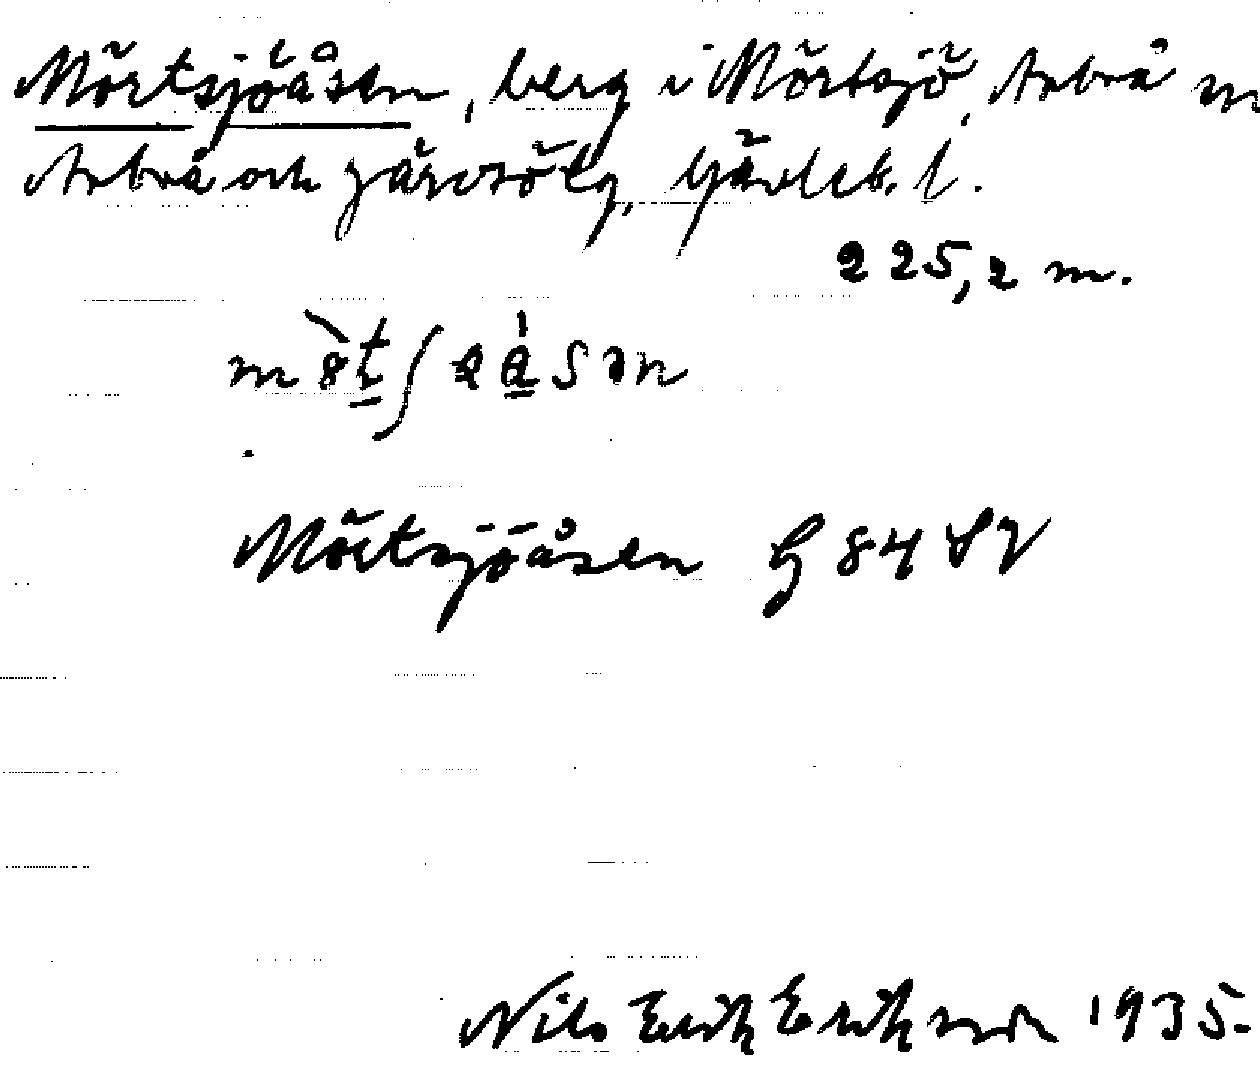 Mörtsjöåsen, berg i Mörtsjö, Arbrå
Arbrå och Järvsö tg, Gävleb. l.
225,2 m.
Mörtsjöåsen G 84 SV
Nils Erik Eriksson 1935.